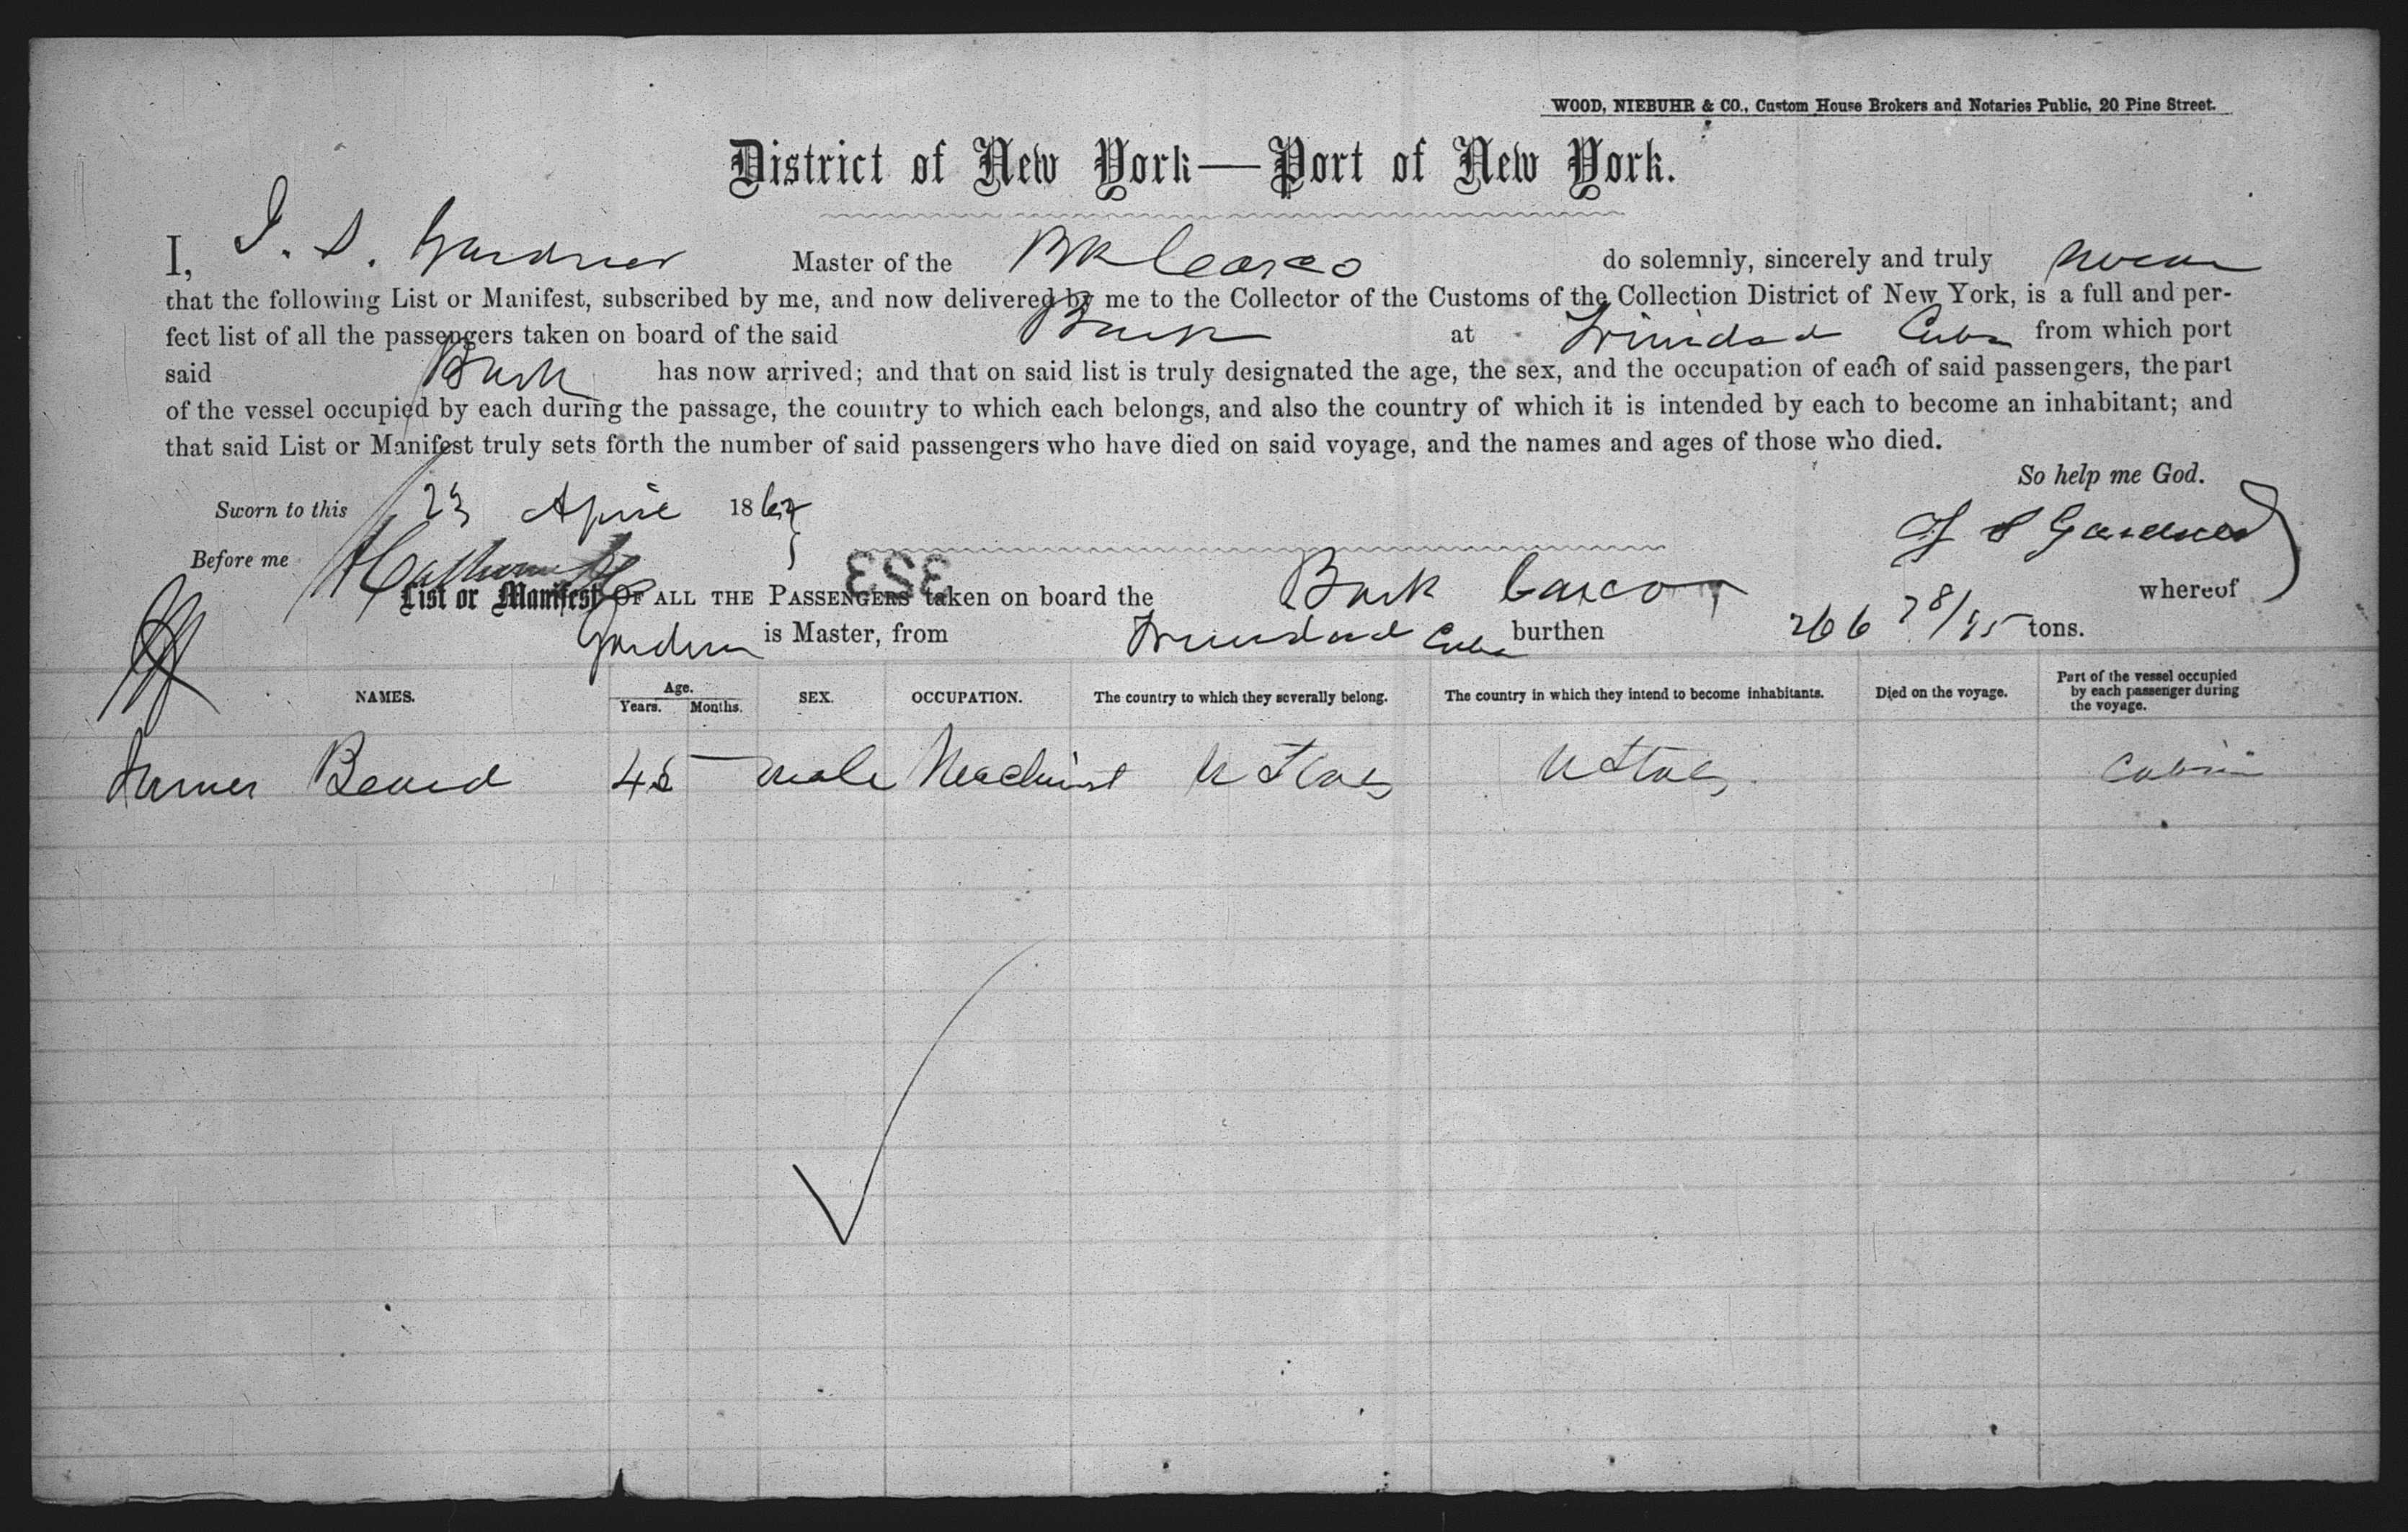 WOOD, NIEBUHR & CO., Custom House Brokers and Notaries Public, 20 Pine Street.
District of New York—Port of New York.
I, J. S. Gardner Master of the Bk Casco do solemnly, sincerely and truly swear
that the following List or Manifest, subscribed by me, and now delivered by me to the Collector of the Customs of the Collection District of New York, is a full and per-
fect list of all the passengers taken on board of the said Bark at Trinidad Cuba from which port
said Bark has now arrived; and that on said list is truly designated the age, the sex, and the occupation of each of said passengers, the part
of the vessel occupied by each during the passage, the country to which each belongs, and also the country of which it is intended by each to become an inhabitant; and
that said List or Manifest truly sets forth the number of said passengers who have died on said voyage, and the names and ages of those who died.
So help me God.
Sworn to this 23 April 186
J S Gardner
Before me
323
List or Manifest OF ALL THE PASSENGERS taken on board the Bark Casco whereof
Gardner is Master, from Trinidad Cuba burthen 266 78/95 tons.
NAMES. Age. Years. Months. SEX. OCCUPATION. The country to which they severally belong. The country in which they intend to become inhabitants. Died on the voyage. Part of the vessel occupied by each passenger during the voyage.
James Beard 45 — male Machinist U States U States Cabin